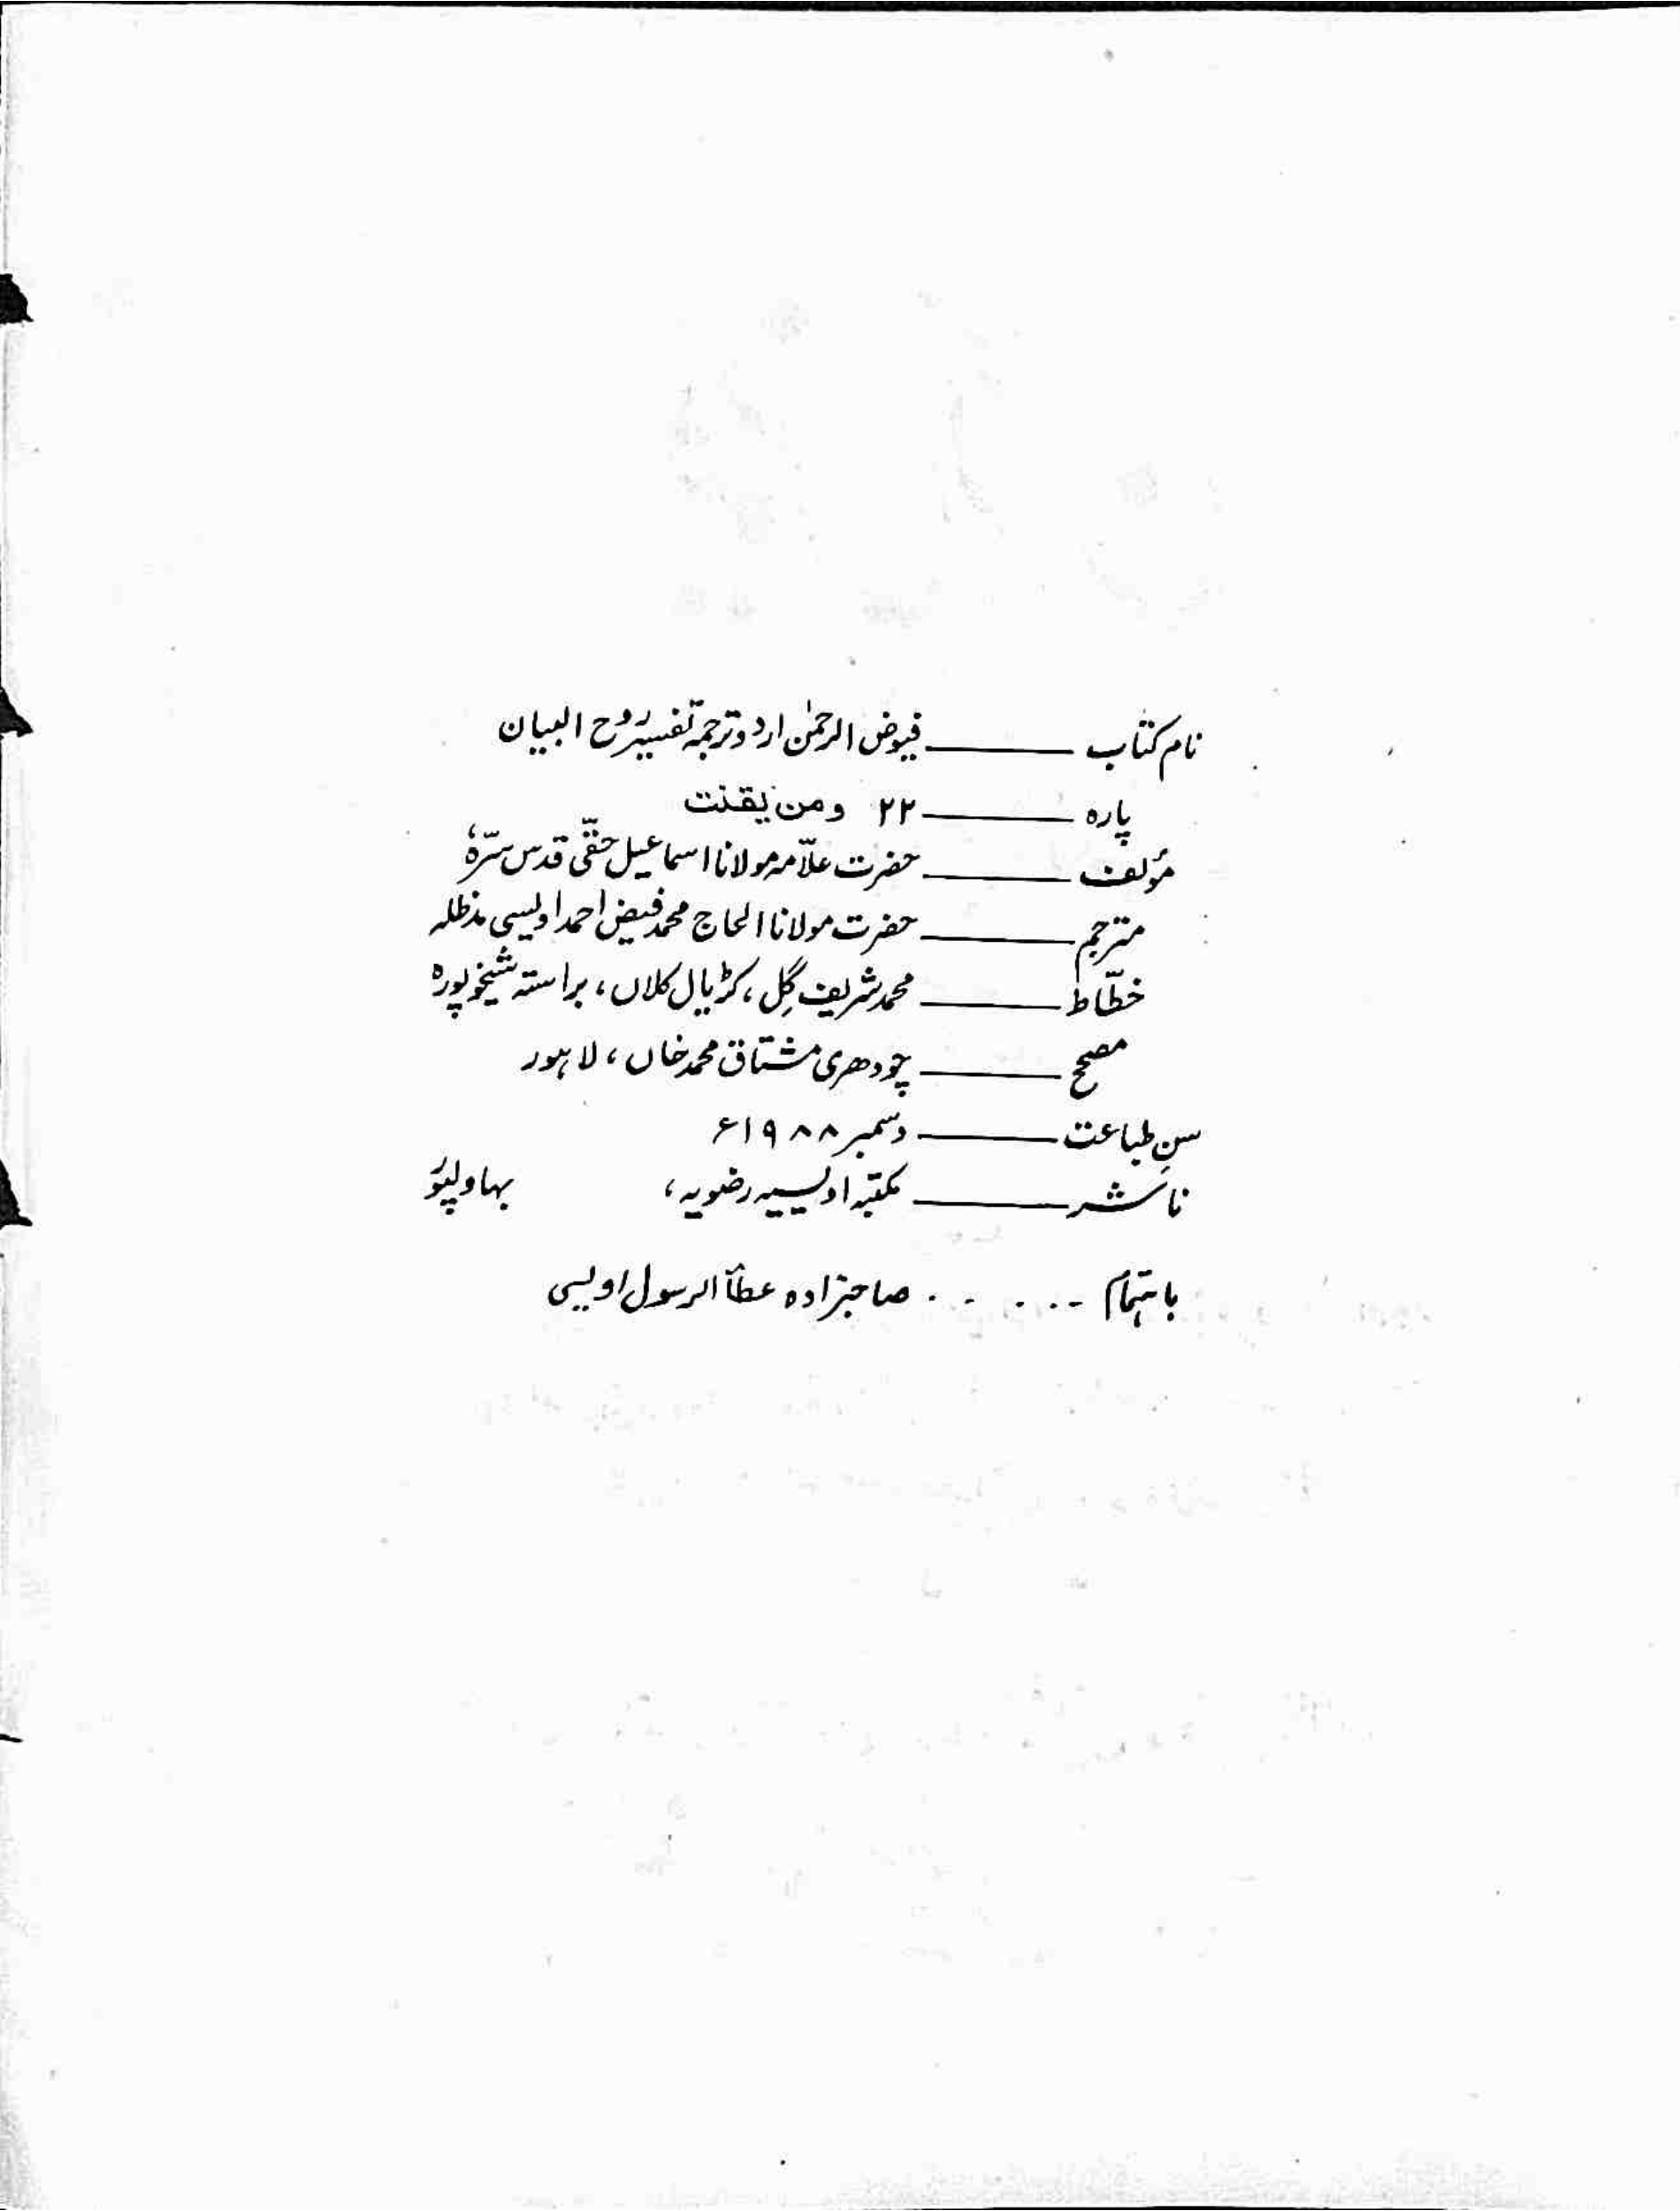 نام کتاب ــــــــ فیوض الرحمٰن اردو ترجمہ تفسیر روح البیان
پارہ ــــــــ ۲۲ ومن یقنت
مؤلف ــــــــ حضرت علّامہ مولانا اسماعیل حقّی قدس سرّہٗ
مترجم ــــــــ حضرت مولانا الحاج محمد فیض احمد اویسی مدظلہ
خطّاط ــــــــ محمد شریف گِل، کڑیال کلاں، براستہ شیخوپورہ
مصحح ــــــــ چودھری مشتاق محمد خاں، لاہور
سنِ طباعت ــــــــ دسمبر ۱۹۸۸ء
ناشر ــــــــ مکتبہ اویسیہ رضویہ، بہاولپور
باہتمام ۔ ۔ ۔ ۔ ۔ ۔ صاحبزادہ عطأ الرسول اویسی